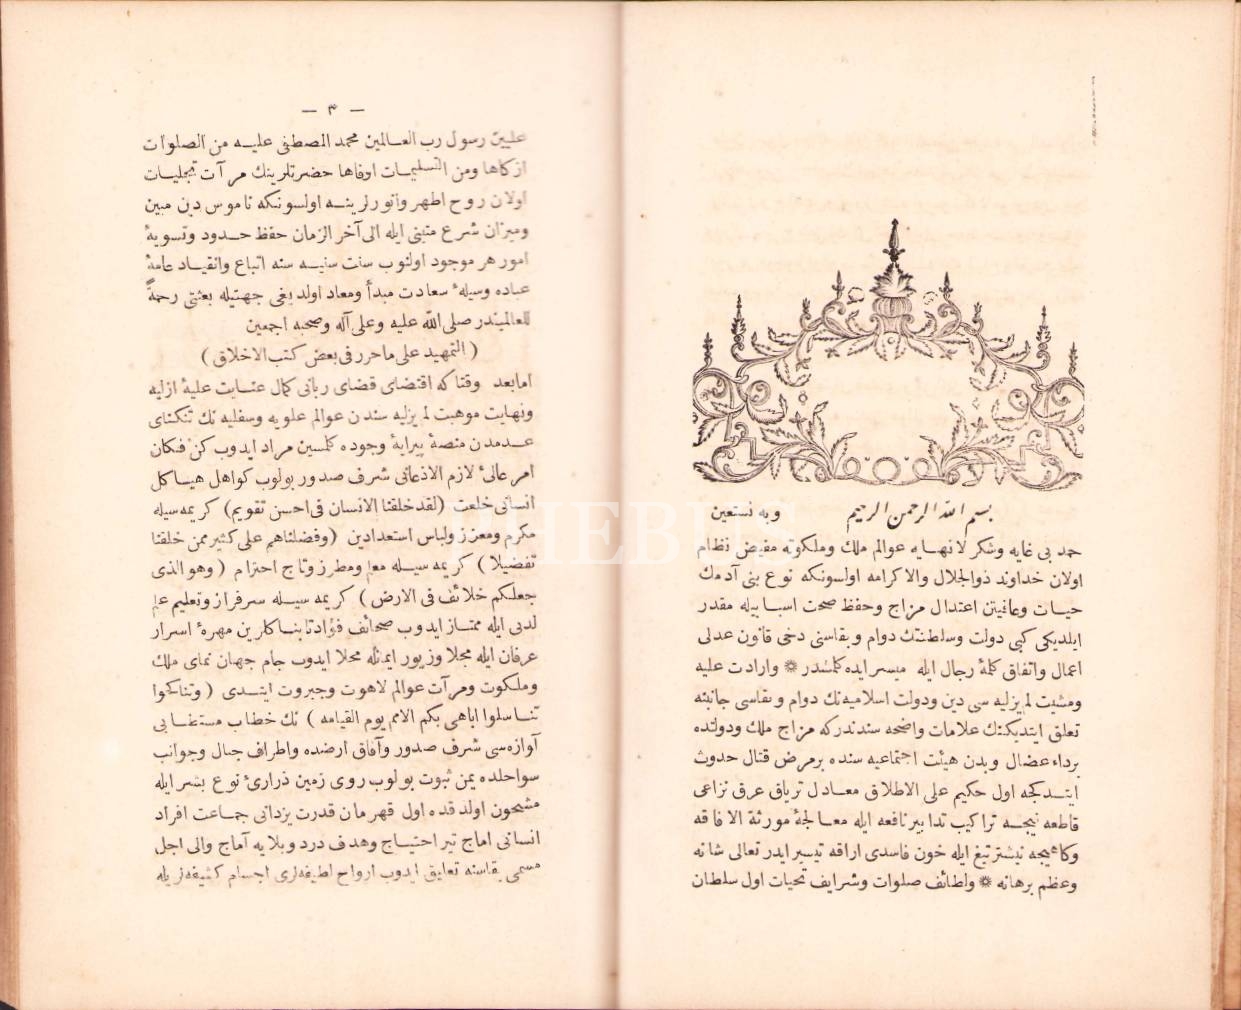 بسم الله الرحمن الرحيم وبه نستعين
حمد بی غایه وشكر لا نهایه عوالم ملك وملكوته مفیض نظام
اولان خداوند ذوالجلال والاكرامه اولسونكه نوع بنی آدمك
حیات وعافیتن اعتدال مزاج وحفظ صحت اسبابیله مقدر
ایلدیكی كبی دولت وسلطنتك دوام وبقاسنی دخی قانون عدلی
اعمال واتفاق كلمۀ رجال ایله میسر ایده كلمشدر ❋ وارادت علیه
ومشیت لم یزلیه سی دین ودولت اسلامیه نك دوام وبقاسی جانبنه
تعلق ایتدیكنك علامات واضحه سندندركه مزاج ملك ودولتده
برداء عضال وبدن هیئت اجتماعیه سنده برمرض قتال حدوث
ایتدكجه اول حكیم علی الاطلاق معادل تریاق عرق نزاعی
قاطعه نیجه تراكیب تدابیر نافعه ایله معالجۀ مورثة الافاقه
وكاهیجه نیشتر تیغ ایله خون فاسدی اراقه تیسیر ایدر تعالی شانه
وعظم برهانه ❋ ولطائف صلوات وشرایف تحیات اول سلطان
— ٣ —
علیین رسول رب العالمین محمد المصطفی علیه من الصلوات
ازكاها ومن التسلیمات اوفاها حضرتلرینك مرآت تجلیات
اولان روح اطهر وانورلرینه اولسونكه ناموس دین مبین
ومیزان شرع متینی ایله الی آخر الزمان حفظ حدود وتسویۀ
امور هر موجود اولنوب سنت سنیه سنه اتباع وانقیاد عامۀ
عباده وسیلۀ سعادت مبدأ ومعاد اولدیغی جهتیله بعثتی رحمةً
للعالمیندر صلی الله علیه وعلی آله وصحبه اجمعین
( التمهید علی ماحرر فی بعض كتب الاخلاق )
امابعد وقتا كه اقتضای قضای ربانی كمال عنایت علیۀ ازلیه
ونهایت موهبت لم یزلیه سندن عوالم علویه وسفلیه نك تنكنای
عدمدن منصۀ پیرایۀ وجوده كلمسین مراد ایدوب كن فكان
امر عالیٔ لازم الاذعانی شرف صدور بولوب كواهل هیاكل
انسانی خلعت (لقد خلقنا الانسان فی احسن تقویم) كریمه سیله
مكرم ومعزز ولباس استعدادین (وفضلناهم علی كثیر ممن خلقنا
تفضیلا) كریمه سیله معلم ومطرز وتاج احترام (وهو الذی
جعلكم خلائف فی الارض) كریمه سیله سرفراز وتعلیم علم
لدنی ایله ممتاز ایدوب صحائف فؤاد تابناكلرین مهرۀ اسرار
عرفان ایله مجلا وزیور ایمانله محلا ایدوب جام جهان نمای ملك
وملكوت ومرآت عوالم لاهوت وجبروت ایتدی (وتناكحوا
تناسلوا اباهی بكم الامم یوم القیامه) نك خطاب مستطابی
آوازه سی شرف صدور وآفاق ارضده واطراف جبال وجوانب
سواحلده یمن ثبوت بولوب روی زمین ذراریٔ نوع بشر ایله
مشحون اولدقده اول قهرمان قدرت یزدانی جماعت افراد
انسانی اماج تیر احتیاج وهدف درد وبلایه آماج والی اجل
مسمی بقاسنه تعلیق ایدوب ارواح لطیفه لری اجسام كثیفه لریله
PHEBUS